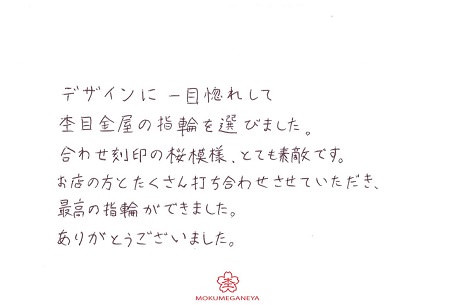 デザインに一目惚れして
杢目金屋の指輪を選びました。
合わせ刻印の桜模様、とても素敵です。
お店の方とたくさん打ち合わせさせていただき、
最高の指輪ができました。
ありがとうございました。
杢
MOKUMEGANEYA